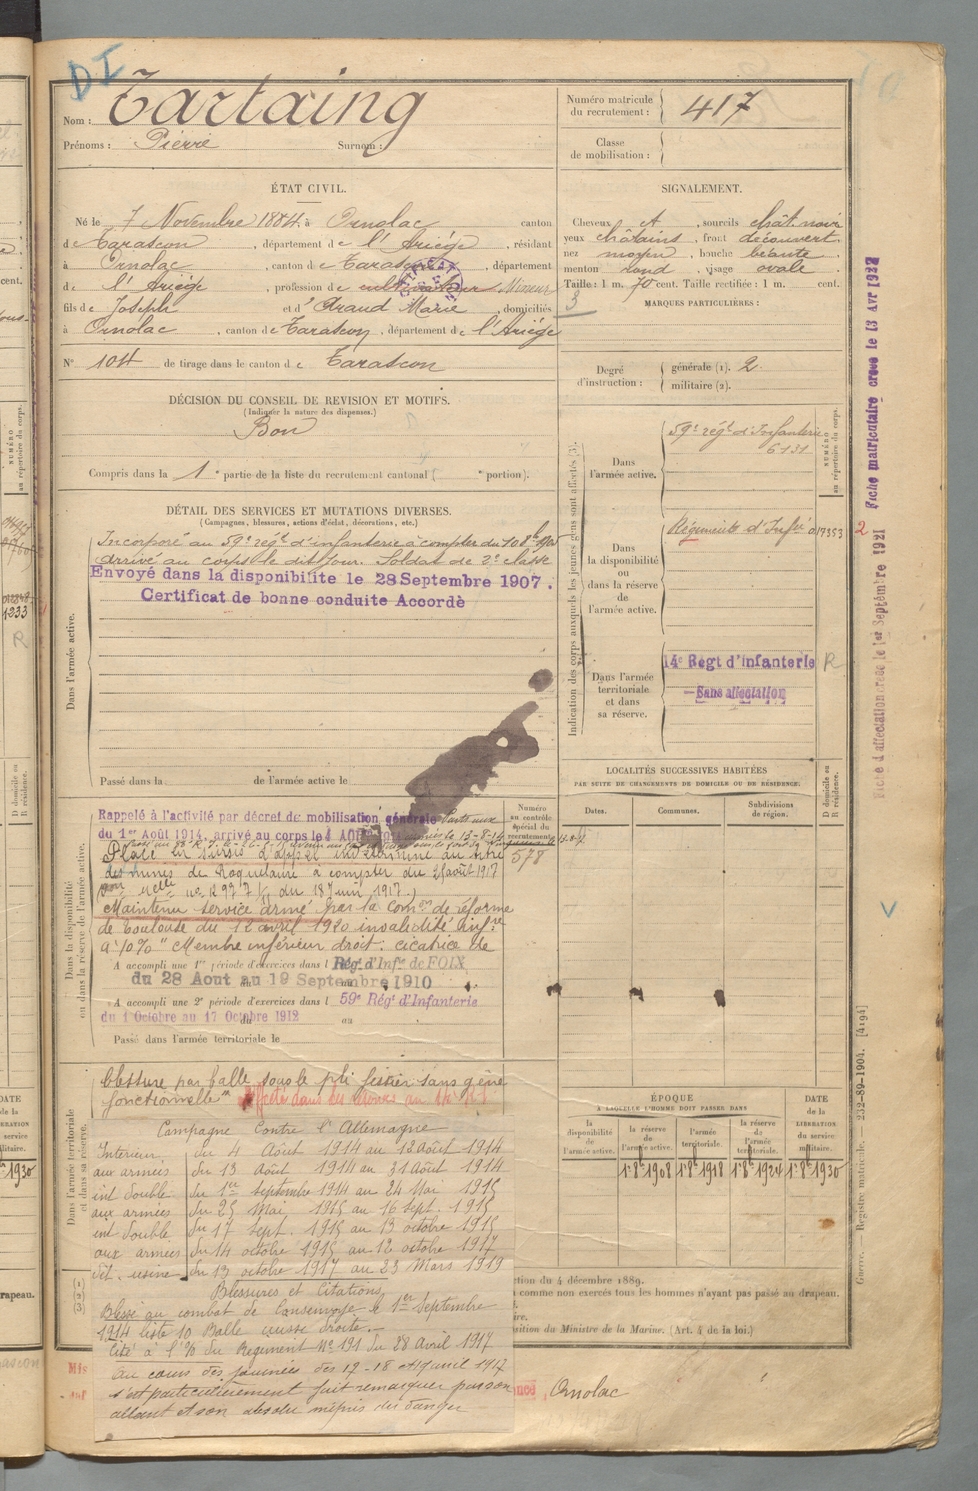 DI
Nom : Tartaing
Prénoms : Pierre Surnom :
Numéro matricule du recrutement : 417
Classe de mobilisation :
ÉTAT CIVIL.
Né le 7 Novembre 1884, à Ornolac canton
de Tarascon, département de l'Ariège, résidant
à Ornolac, canton de Tarascon, département
de l'Ariège, profession de cultivateur Mineur
fils de Joseph et d'Araud Marie, domiciliés
à Ornolac, canton de Tarascon, département de l'Ariège
N° 104 de tirage dans le canton de Tarascon
SIGNALEMENT.
Cheveux et, sourcils chât. noir
yeux châtains, front découvert
nez moyen, bouche béante
menton rond, visage ovale
Taille : 1 m. 70 cent. Taille rectifiée : 1 m. cent.
3
MARQUES PARTICULIÈRES :
Degré d'instruction : générale (1). 2
militaire (2).
DÉCISION DU CONSEIL DE REVISION ET MOTIFS.
(Indiquer la nature des dispenses.)
Bon
Compris dans la 1e partie de la liste du recrutement cantonal ( e portion).
DÉTAIL DES SERVICES ET MUTATIONS DIVERSES.
(Campagnes, blessures, actions d'éclat, décorations, etc.)
Dans l'armée active.
Incorporé au 59e régt d'infanterie à compter du
arrivé au corps le dit jour. Soldat de 2e classe
Envoyé dans la disponibilité le 28 Septembre 1907.
Certificat de bonne conduite Accordé
Passé dans la de l'armée active le
Indication des corps auxquels les jeunes gens sont affectés (3).
Dans l'armée active.
59e régt d'Infanterie
6131
NUMÉRO au répertoire du corps.
Dans la disponibilité ou dans la réserve de l'armée active.
Régiment d'Infie 017353
Dans l'armée territoriale et dans sa réserve.
14e Regt d'Infanterie R
Sans affectation
LOCALITÉS SUCCESSIVES HABITÉES
PAR SUITE DE CHANGEMENTS DE DOMICILE OU DE RÉSIDENCE.
D domicile ou R résidence.
Dates. Communes. Subdivisions de région.
Dans la disponibilité ou dans la réserve de l'armée active.
Numéro au contrôle spécial du recrutement
578
Rappelé à l'activité par décret de mobilisation générale
du 1er Août 1914, arrivé au corps le 4 AOUT 1914
Placé en sursis d'appel indéterminé au titre
des mines de Roquelaire à compter du août 1917
du 18 Juin 1917.)
Maintenu service armé par la Comon de réforme
de Toulouse du 12 avril 1920 invalidité infre
à 10% "Membre inférieur droit : cicatrice de
A accompli une 1re période d'exercices dans l Rég. d'Infie de FOIX
du 28 Aout au 19 Septembre 1910
A accompli une 2e période d'exercices dans l 59e Régt d'Infanterie
du 1 Octobre au 17 Octobre 1912
Passé dans l'armée territoriale le
Dans l'armée territoriale et dans sa réserve.
blessure par balle sous le pli fessier sans gêne
fonctionnelle"
Campagne Contre l'Allemagne
Interieur du 4 Août 1914 au 12 Août 1914
aux armées du 13 Août 1914 au 31 Août 1914
int double du 1er Septembre 1914 au 24 Mai 1915
aux armées du 25 Mai 1915 au 16 sept. 1915
int double du 17 sept. 1915 au 13 octobre 1915
aux armées du 14 octobre 1915 au 12 octobre 1917
det. usine du 13 octobre 1917 au 23 Mars 1919
Blessures et Citations
Blessé au combat de Consenvoye le 1er Septembre
1914 liste 10 Balle cuisse droite.
Cité à l'% du Regiment N° 191 du 28 Avril 1917
Au cours des journées des 17-18 Avril 1917
s'est particulièrement fait remarquer par son
allant et son absolu mépris du danger
ÉPOQUE
À LAQUELLE L'HOMME DOIT PASSER DANS
DATE de la LIBÉRATION du service militaire.
la disponibilité de l'armée active. la réserve de l'armée active. l'armée territoriale. la réserve de l'armée territoriale.
1er 8bre 1908 1er 8bre 1918 1er 8bre 1924 1er 8bre 1930
ction du 4 décembre 1889.
comme non exercés tous les hommes n'ayant pas passé au drapeau.
sition du Ministre de la Marine. (Art. 4 de la loi.)
Ornolac
Fiche matriculaire créée le 13 Avr 1922
2
Fiche d'affectation créée le 1er Septembre 1921
Guerre. — Registre matricule. — 232-89-1904. [4194]